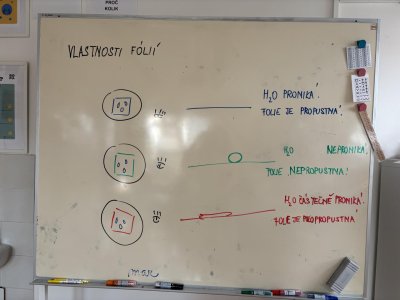 PROČ
KOLIK
VLASTNOSTI FÓLIÍ
H₂O PRONIKÁ!
FOLIE JE PROPUSTNÁ!
H₂O NEPRONIKÁ!
FOLIE NEPROPUSTNÁ!
H₂O ČÁSTEČNĚ PRONIKÁ!
FOLIE JE POLOPROPUSTNÁ